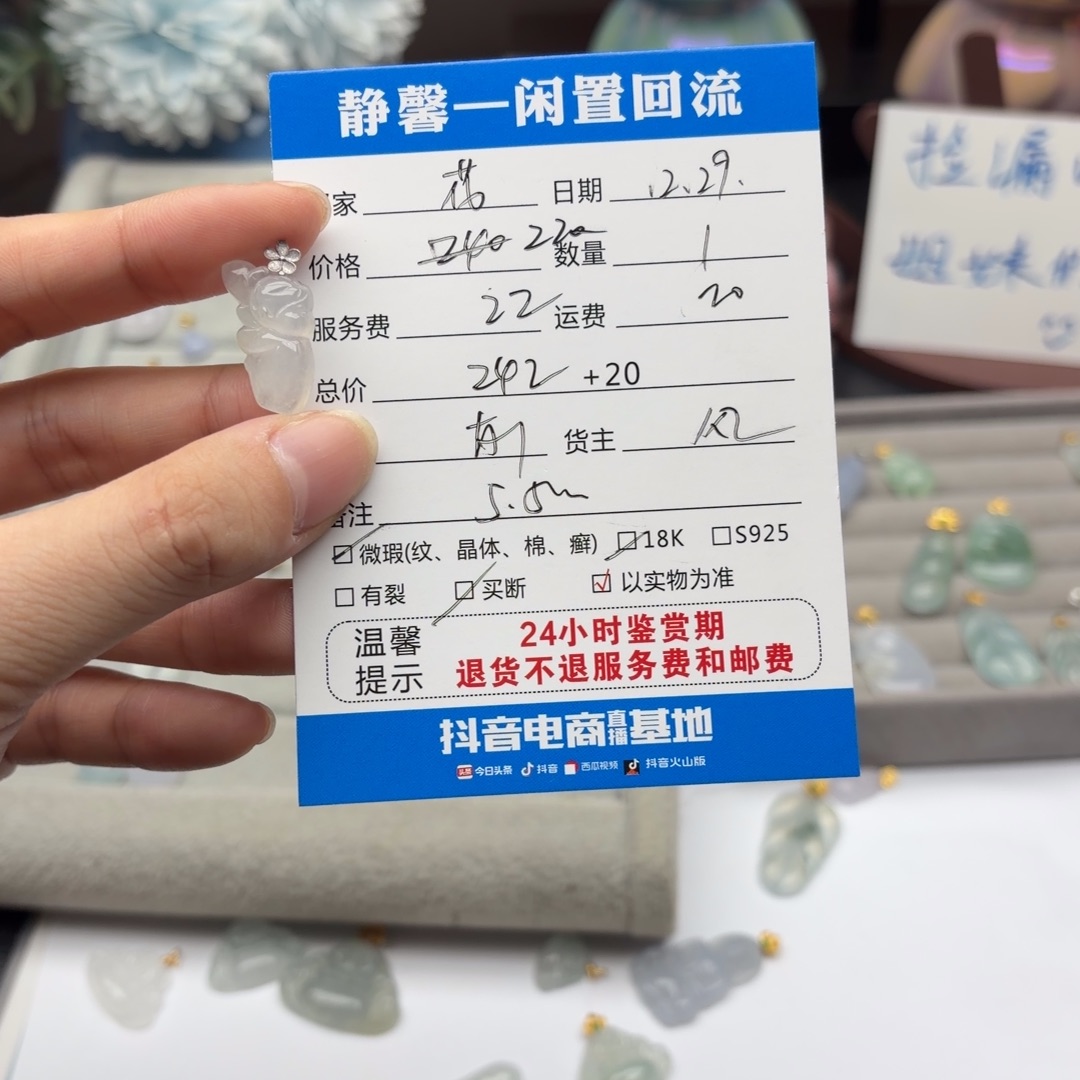 静馨一闲置回流
家 日期 12.29.
价格 240 220 数量 1
服务费 22 运费 20
总价 242 +20
货主
备注
微瑕(纹、晶体、棉、癣) 18K S925
有裂 买断 以实物为准
温馨提示
24小时鉴赏期
退货不退服务费和邮费
抖音电商直播基地
头条 今日头条 抖音 西瓜视频 抖音火山版
捡漏
姐妹